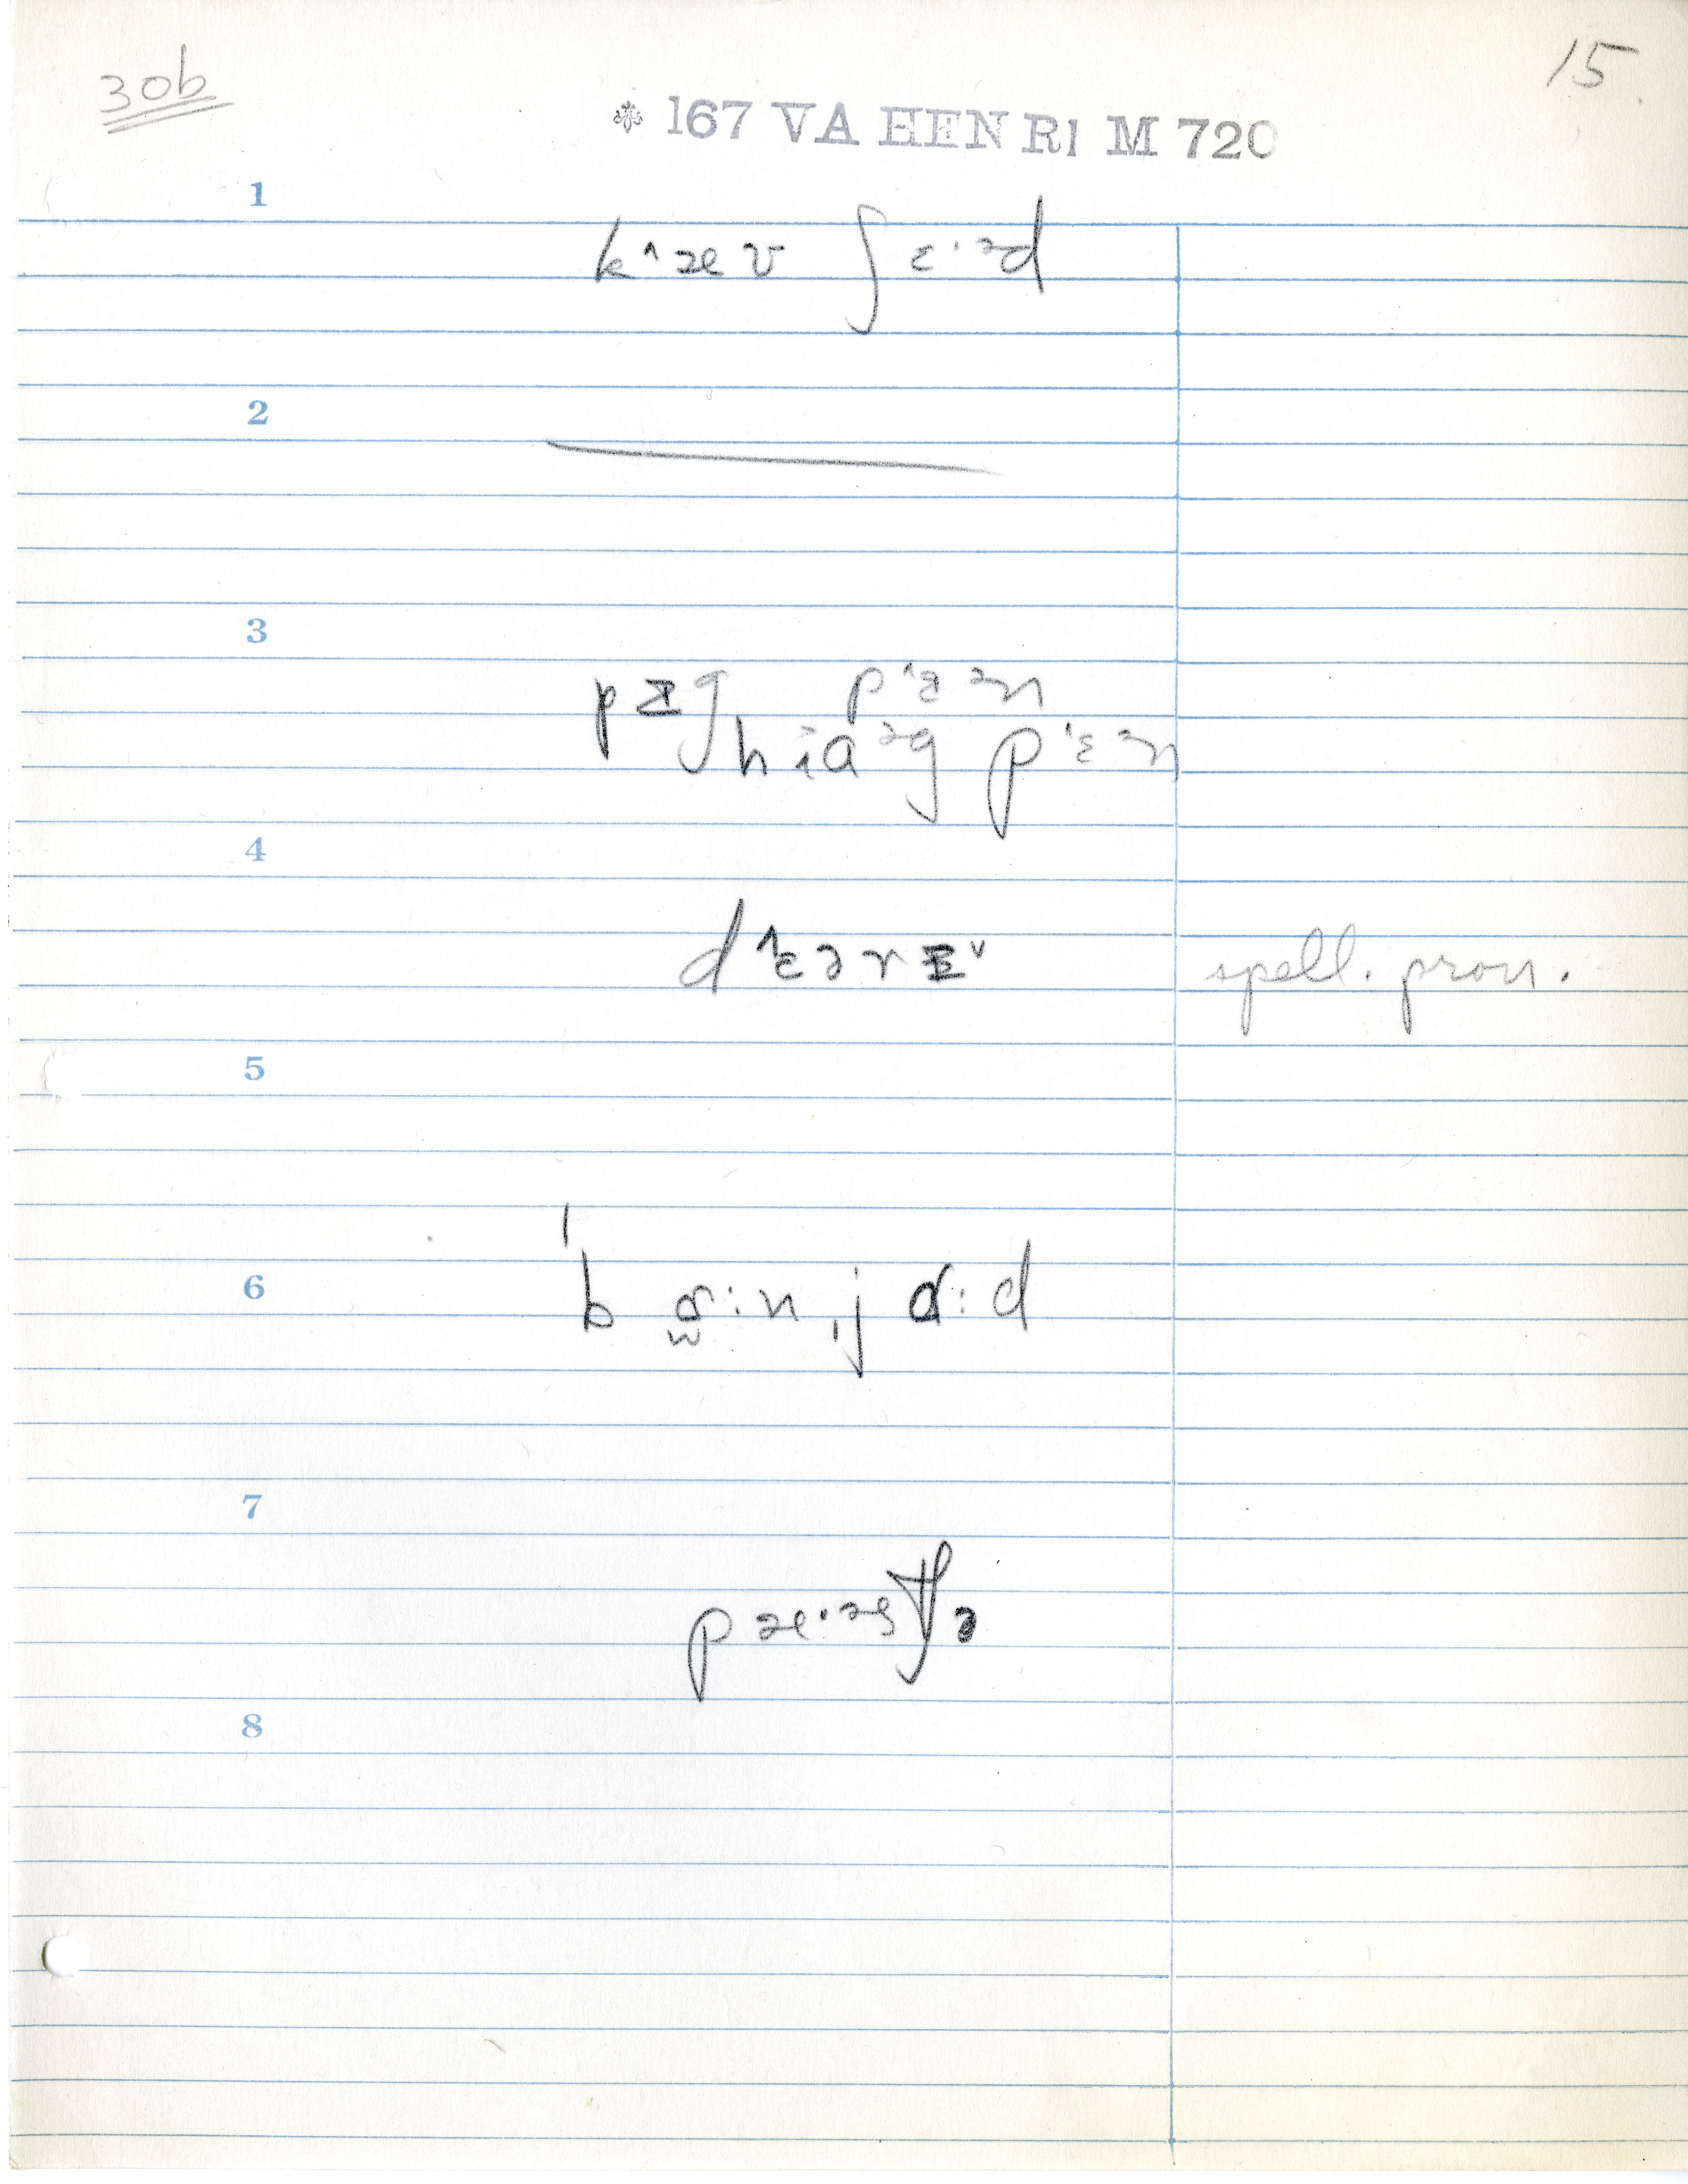 30b
15.
* 167 VA HENRI M 720
1
k˄æv ʃɛ·ᵊd
2
3
pɪg p˄ɪᵊn
hɑᵊg pɛᵊn
4
d˄ɛərɪ˅ spell. pron.
5
6
ˈbɑ:nˌjɑ:d
7
pæ·əstʃə
8